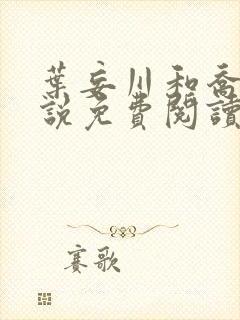 葉妄川和喬
說免費閱讀
賽歌